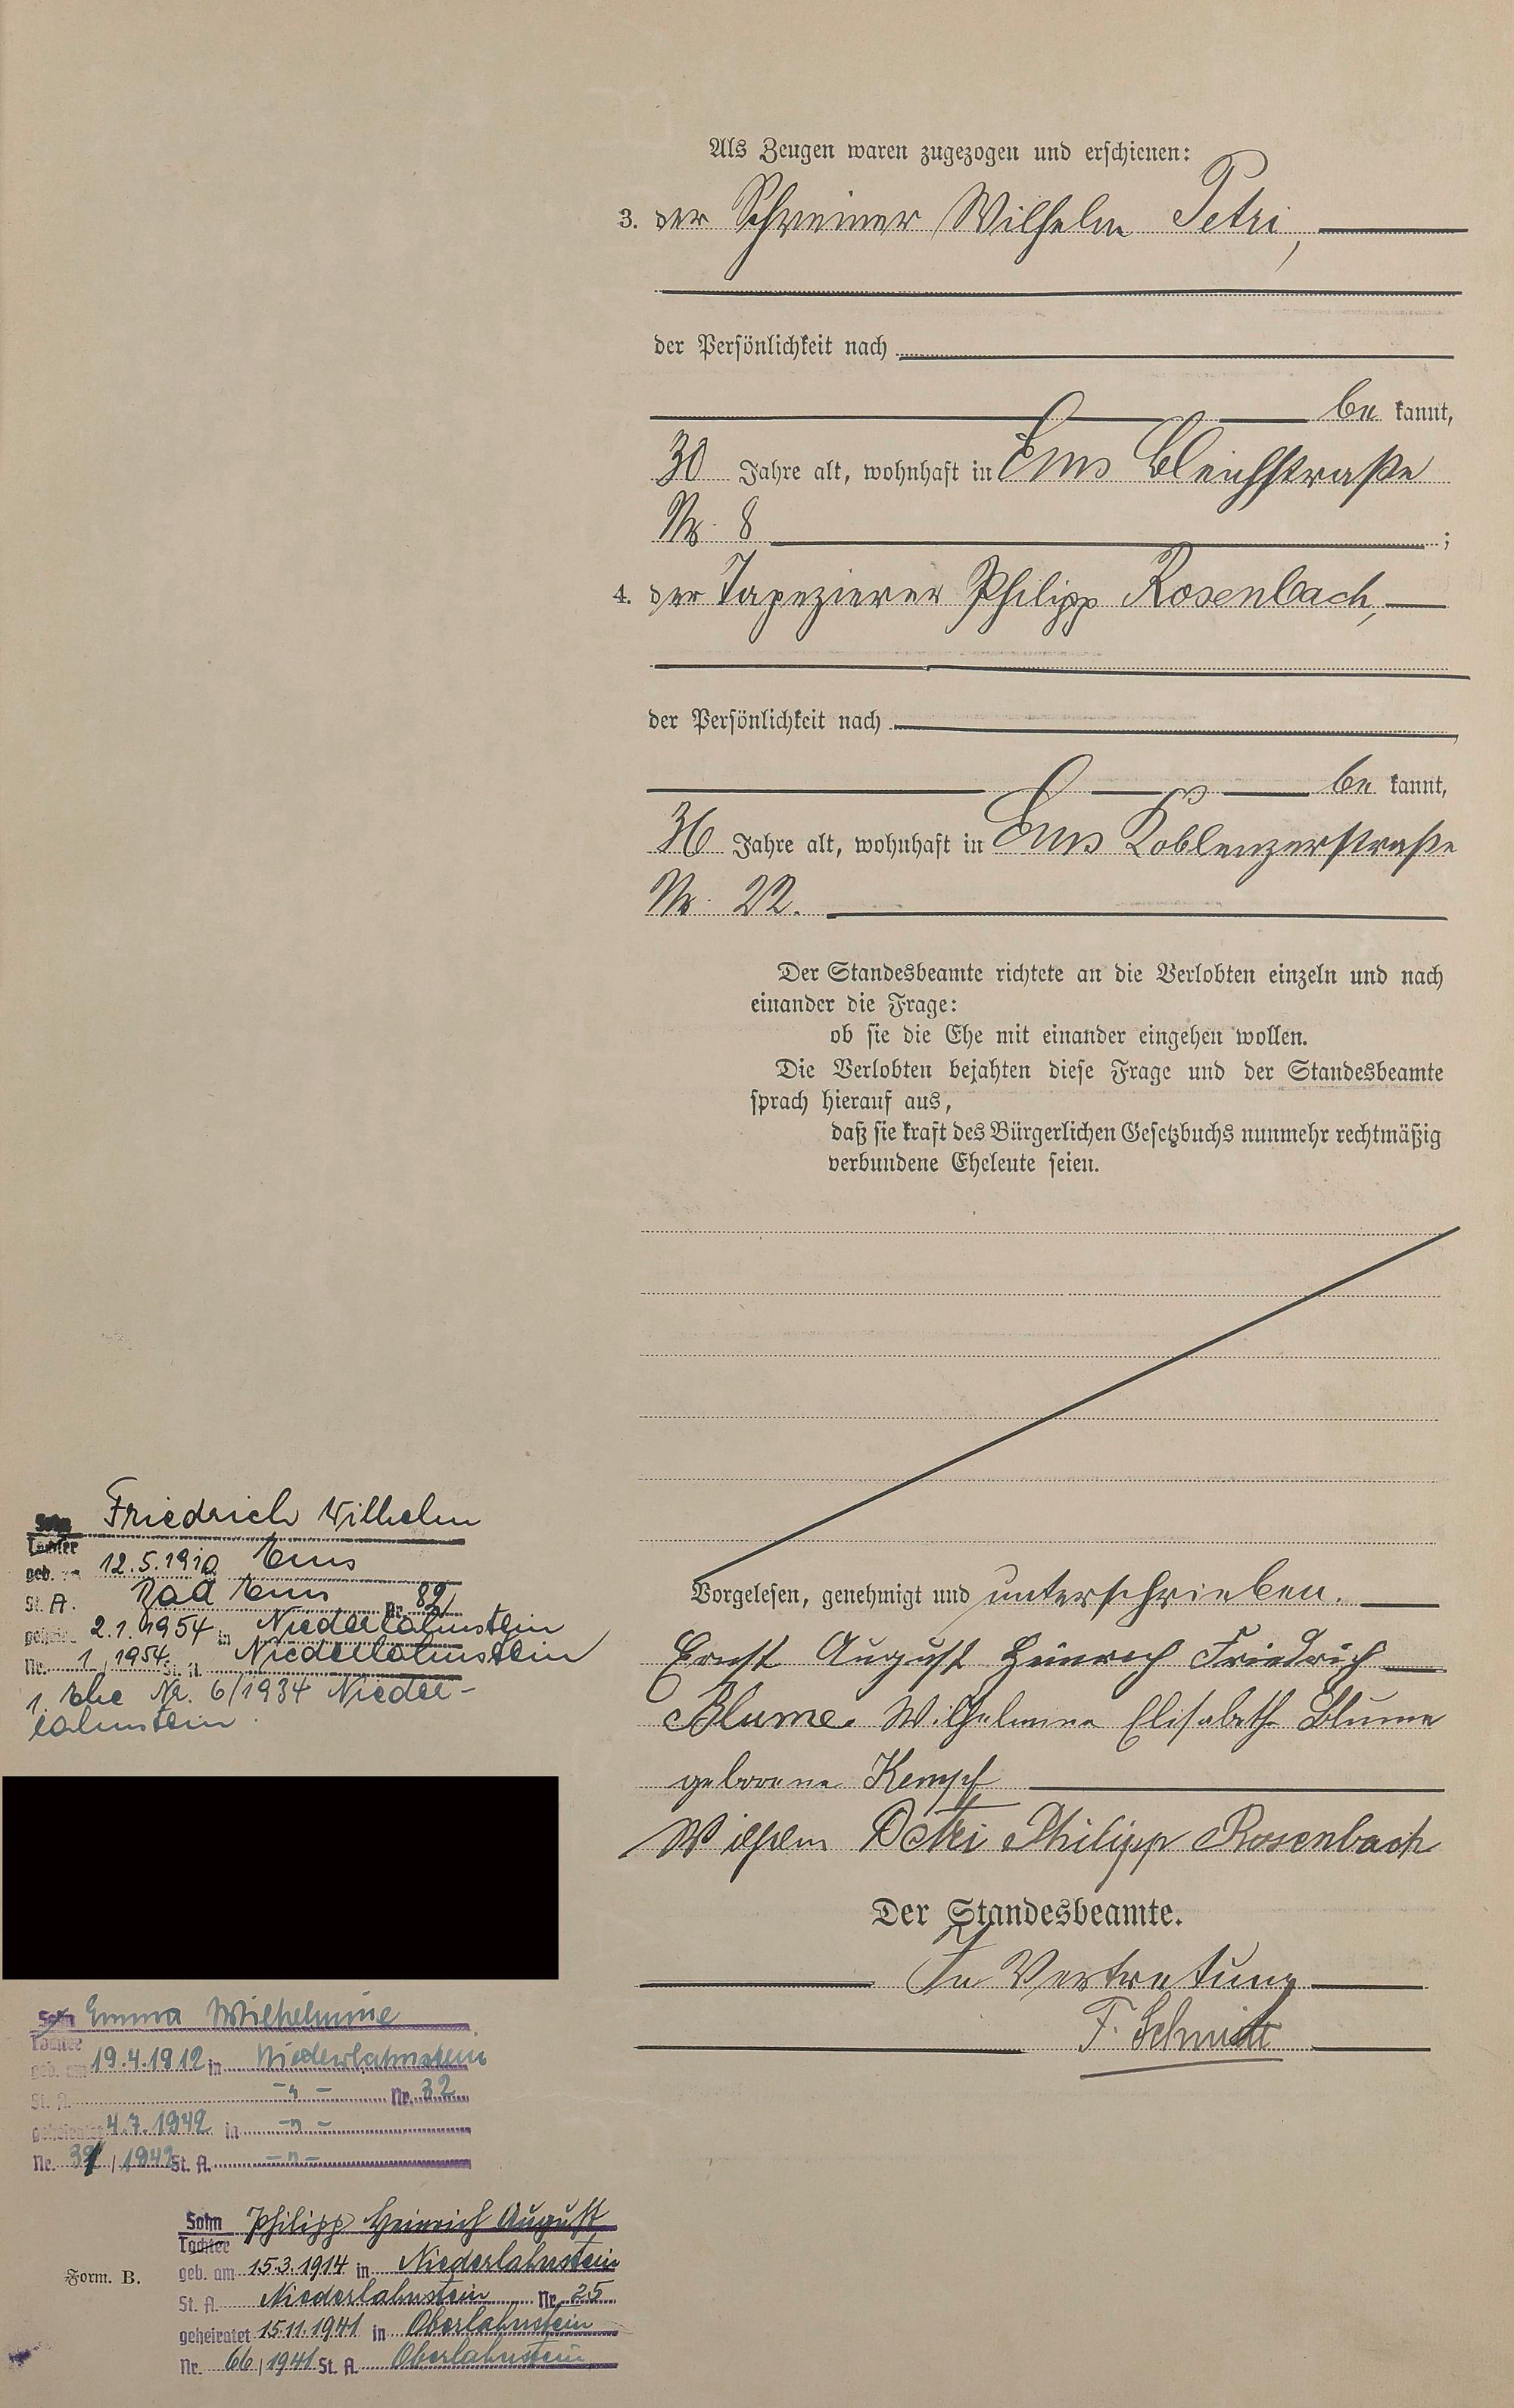 Als Zeugen waren zugezogen und erschienen:
3. der Schreiner Wilhelm Petri,
der Persönlichkeit nach
be kannt,
30 Jahre alt, wohnhaft in Ems Bleichstraße
Nr. 8 ;
4. der Tapezierer Philipp Rosenbach,
der Persönlichkeit nach
be kannt,
36 Jahre alt, wohnhaft in Ems Koblenzerstraße
Nr. 22.
Der Standesbeamte richtete an die Verlobten einzeln und nach
einander die Frage:
ob sie die Ehe mit einander eingehen wollen.
Die Verlobten bejahten diese Frage und der Standesbeamte
sprach hierauf aus,
daß sie kraft des Bürgerlichen Gesetzbuchs nunmehr rechtmäßig
verbundene Eheleute seien.
Vorgelesen, genehmigt und unterschrieben.
Ernst August Heinrich Friedrich
Blume. Wilhelmine Elisabeth Blume
geborene Kempf
Wilhelm Petri Philipp Rosenbach
Der Standesbeamte.
In Vertretung
F. Schmitt
Sohn Friedrich Wilhelm
Tochter
geb. am 12.5.1910 Ems
St. A. Bad Ems Nr. 82
geheir. 2.1.1954 in Niederlahnstein
Nr. 1/1954 St. A. Niederlahnstein
1. Ehe Nr. 6/1934 Nieder-
lahnstein.
Sohn Emma Wilhelmine
Tochter
geb. am 19.4.1912 in Niederlahnstein
St. A. -"- Nr. 32
geheiratet 4.7.1942 in -"-
Nr. /1942 St. A. -"-
Sohn Philipp Heinrich August
Tochter
geb. am 15.3.1914 in Niederlahnstein
St. A. Niederlahnstein Nr. 25
geheiratet 15.11.1941 in Oberlahnstein
Nr. 66/1941 St. A. Oberlahnstein
Form. B.